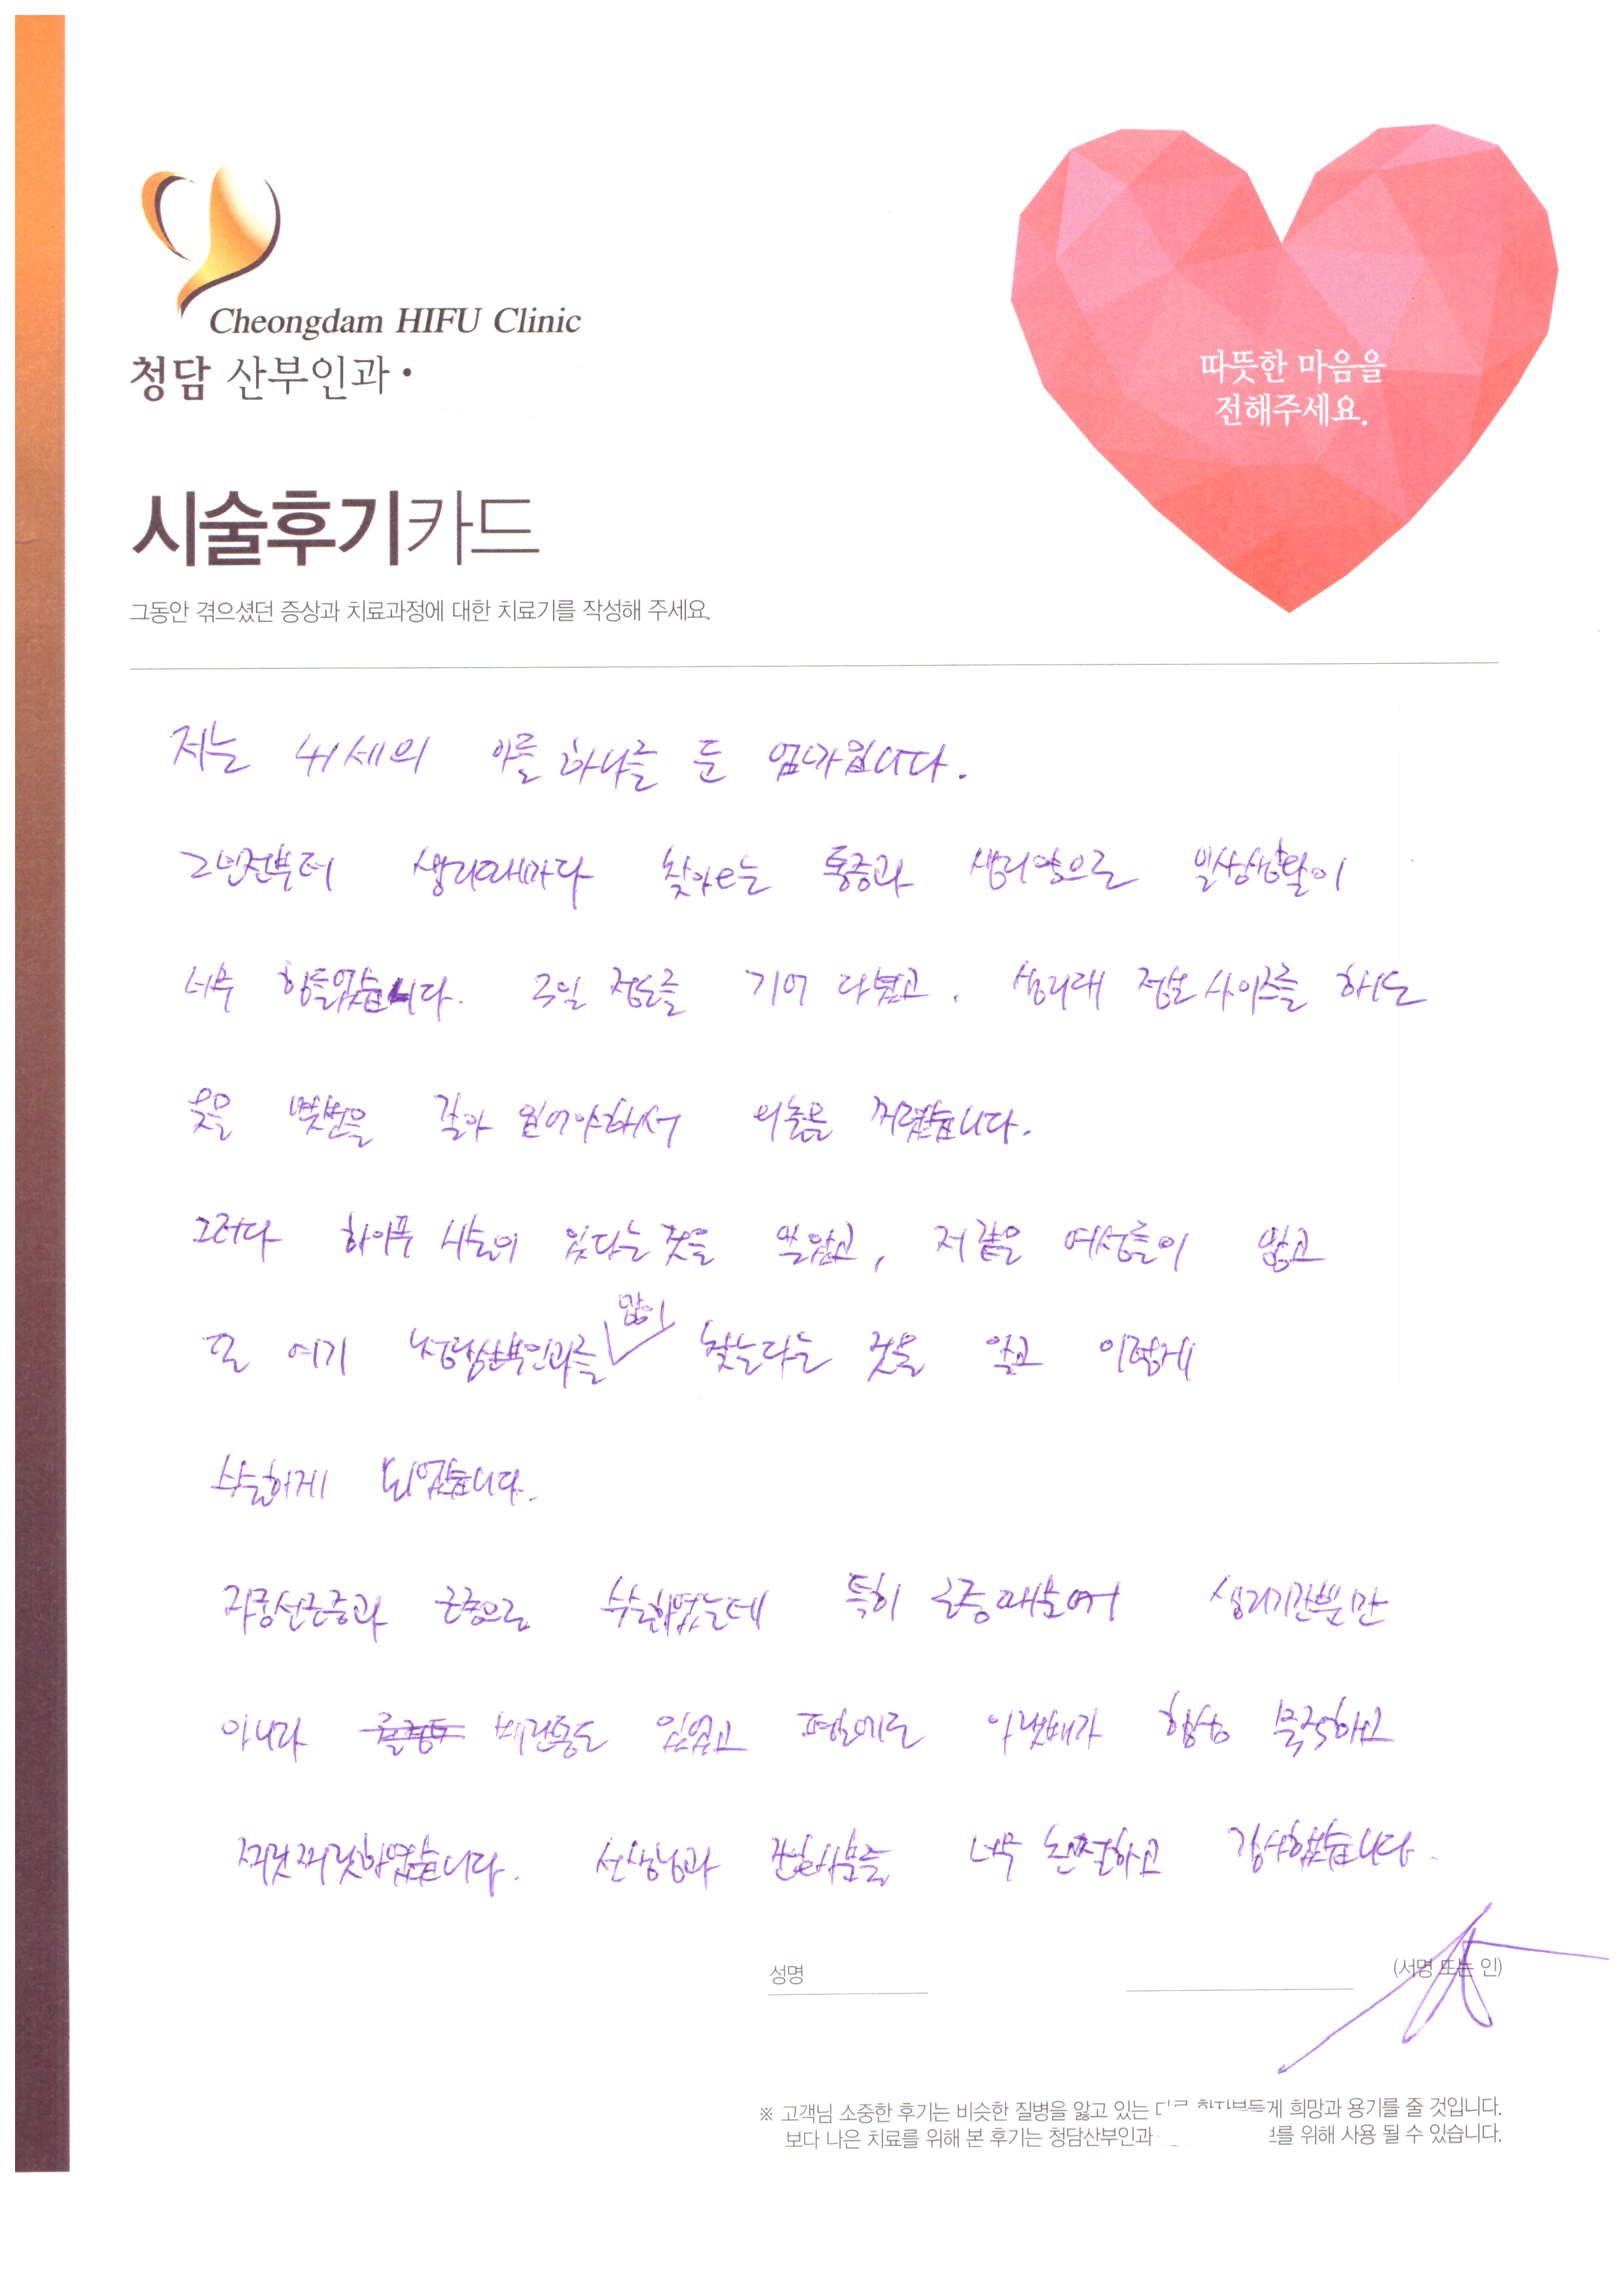 Cheongdam HIFU Clinic
청담 산부인과
따뜻한 마음을
전해주세요.
시술후기카드
그동안 겪으셨던 증상과 치료과정에 대한 치료기를 작성해 주세요.
저는 41세의 아들 하나를 둔 엄마입니다.
2년전부터 생리때마다 찾아오는 통증과 생리양으로 일상생활이
너무 힘들었습니다. 2일 정도를 기어 다녔고, 생리대 점보 사이즈를 해도
옷을 몇번을 갈아 입어야해서 외출을 꺼렸습니다.
그러다 하이푸 시술이 있다는 것을 알았고, 저 같은 여성들이 많고
또 여기 청담산부인과를 많이 찾는다는 것을 알고 이렇게
수술하게 되었습니다.
자궁선근증과 근종으로 수술하였는데 특히 근종때문에 생리기간뿐만
아니라 배란통도 있었고 평일에도 아랫배가 항상 묵직하고
찌릿찌릿하였습니다. 선생님과 간호사분들 너무 친절하고 감사했습니다.
성명
(서명 또는 인)
※ 고객님 소중한 후기는 비슷한 질병을 앓고 있는 다른 환자분들게 희망과 용기를 줄 것입니다.
보다 나은 치료를 위해 본 후기는 청담산부인과 를 위해 사용 될 수 있습니다.